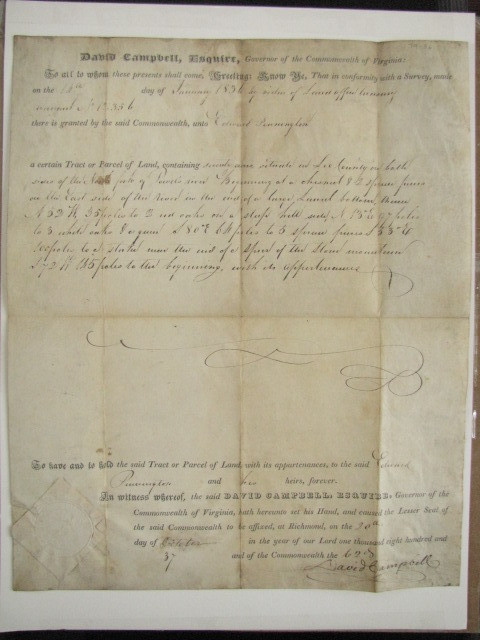 David Campbell, Esquire, Governor of the Commonwealth of Virginia:
To all to whom these presents shall come, Greeting: Know Ye, That in conformity with a Survey, made
on the day of January 1836 by virtue of Land office treasury
warrant
there is granted by the said Commonwealth, unto Edward Pennington
a certain Tract or Parcel of Land, containing seventy acres situate in Lee County on both
sides of the North fork of Powels river Beginning at a chesnut & 2 spruce pines
on the East side of the River in the end of a large Laurel bottom, thence
poles to 2 red oaks on a steep hill side, poles
to 3 white oaks poles to 3 spruce pines
poles to a stake near the end of a spur of the Stone mountain
poles to the beginning, with its appurtenances
To have and to hold the said Tract or Parcel of Land, with its appurtenances, to the said Edward
Pennington and his heirs, forever.
In witness whereof, the said DAVID CAMPBELL, ESQUIRE, Governor of the
Commonwealth of Virginia, hath hereunto set his Hand, and caused the Lesser Seal of
the said Commonwealth to be affixed, at Richmond, on the 20th
day of October in the year of our Lord one thousand eight hundred and
37 and of the Commonwealth the 62d
David Campbell